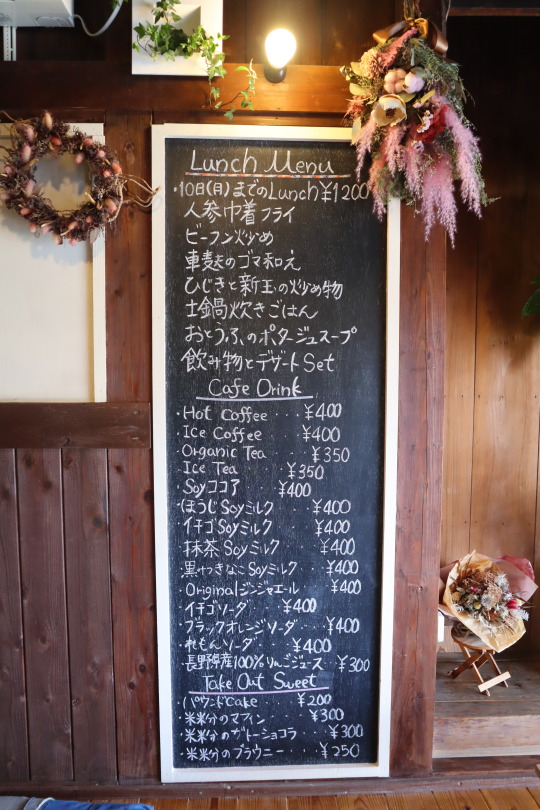 Lunch Menu
・10日(月)までのLunch ¥1200
人参巾着フライ
ビーフン炒め
車麩のゴマ和え
ひじきと新玉の炒め物
土鍋炊きごはん
おとうふのポタージュスープ
飲み物とデザートSet
Cafe Drink
・Hot Coffee ・・・ ¥400
・Ice Coffee ¥400
・Organic Tea ・・ ¥350
・Ice Tea ¥350
・Soyココア ¥400
・ほうじSoyミルク ・・ ¥400
・イチゴSoyミルク ¥400
・抹茶Soyミルク ¥400
・黒みつきなこSoyミルク ・・ ¥400
・Originalジンジャエール ¥400
・イチゴソーダ ・・ ¥400
・ブラックオレンジソーダ ・・ ¥400
・れもんソーダ ¥400
・長野県産100%りんごジュース ・・ ¥300
Take Out Sweet
・パウンドCake ¥200
・米米分のマフィン ¥300
・米米分のガトーショコラ ・・ ¥300
・米米分のブラウニー ・・ ¥250